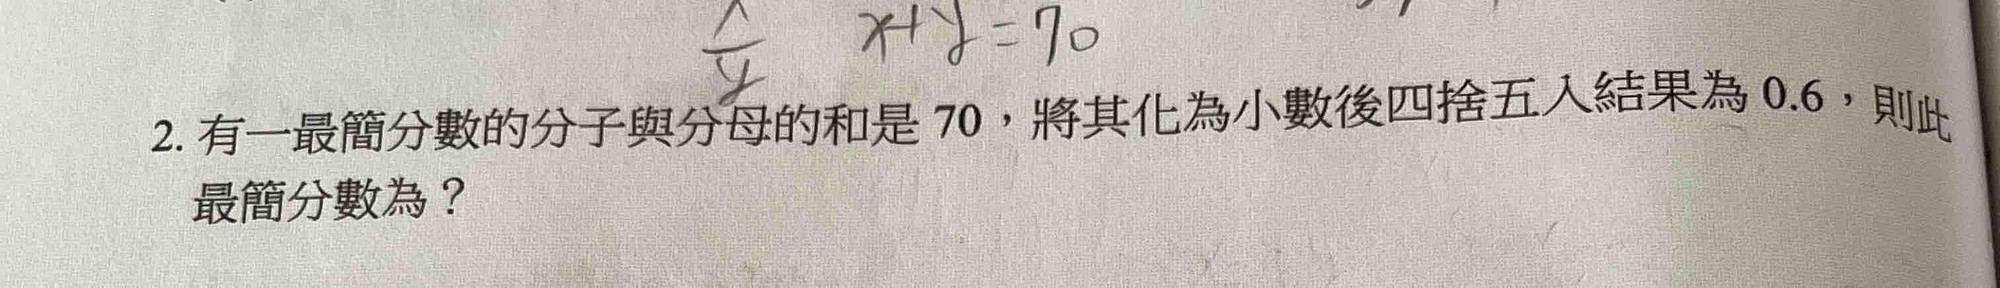 x/y x+y=70
2. 有一最簡分數的分子與分母的和是 70，將其化為小數後四捨五入結果為 0.6，則此
最簡分數為？